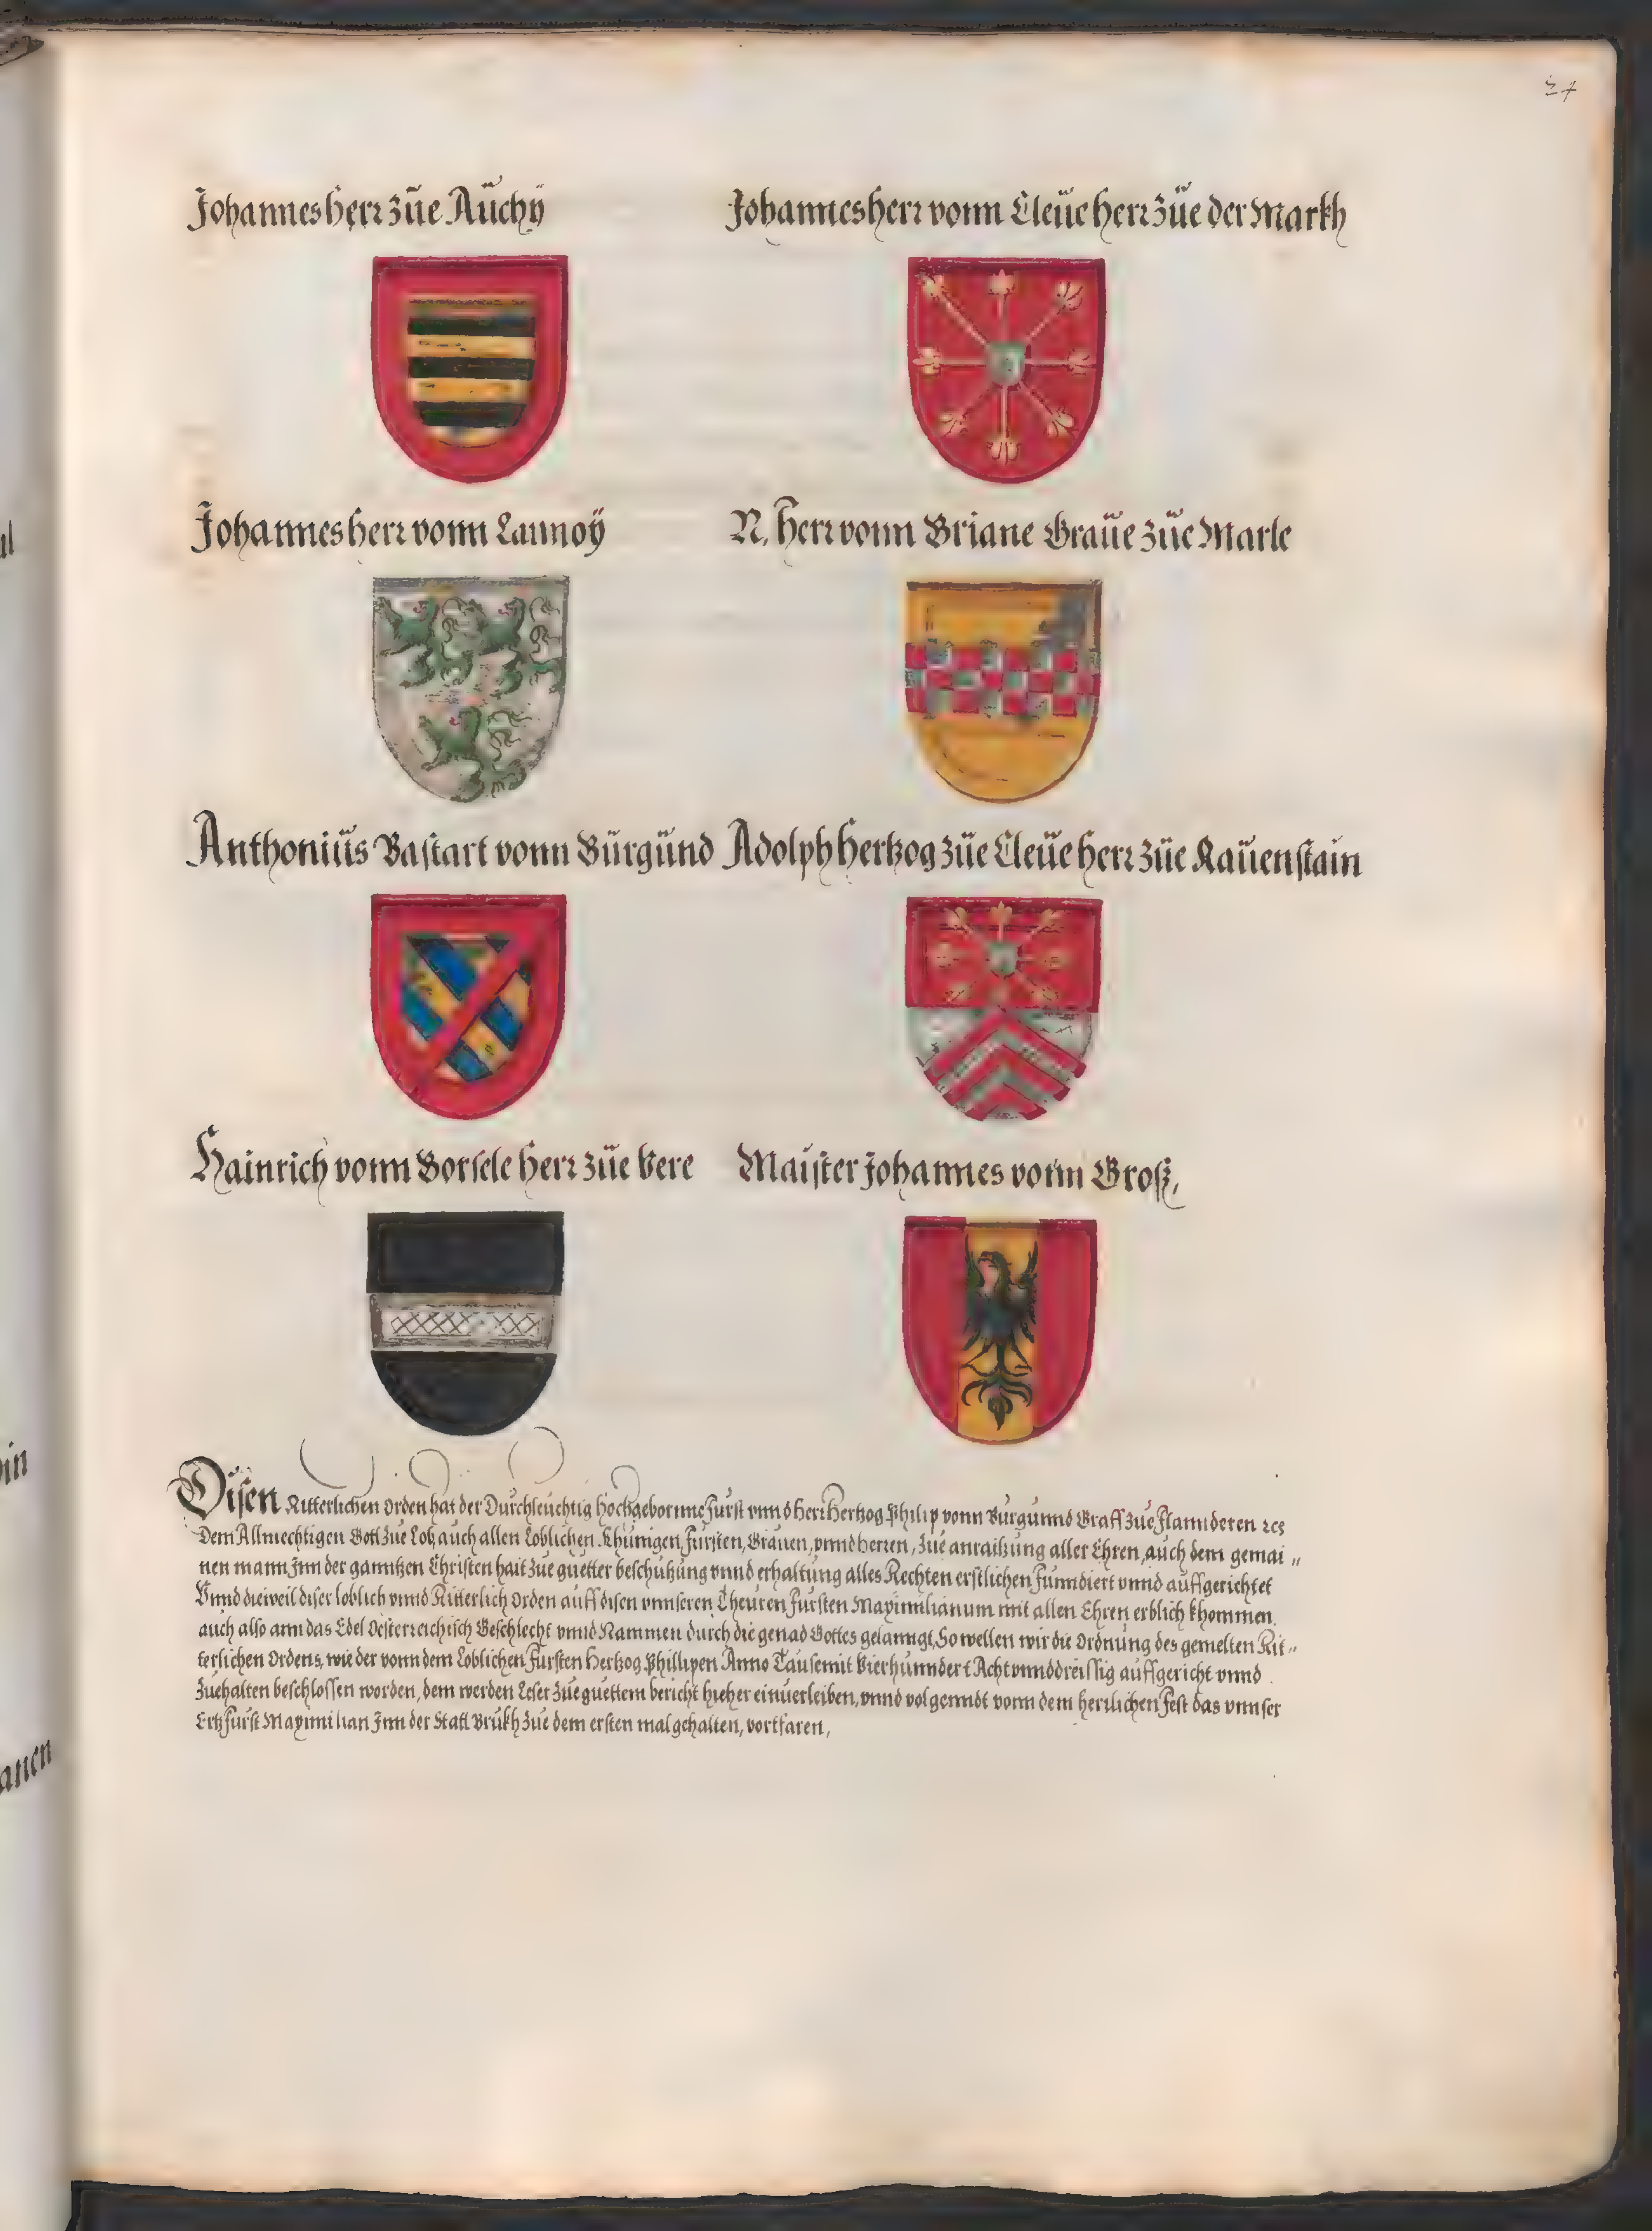 27
Johannes herr züe Aüchÿ
Johannes herr vonn Cleüe herr züe der Markh
Johannes herr vonn Lannoÿ
N. herr vonn Briane Graüe züe Marle
Anthoniüs Bastart vonn Bürgünd
Adolph Hertzog züe Cleüe herr züe Raüenstain
Hainrich vonn Borsele herr züe Vere
Maister Johannes vonn Groß,
Disen Ritterlichen Orden hat der Durchleüchtig Hochgebornne Fürst vnnd Herr Hertzog Philip vonn Bürgünnd Graff züe Flannderen ꝛc
Dem Allmechtigen Gott züe Lob, auch allen Loblichen Khünigen, Fürsten, Grauen, vnnd herren, züe anraitzüng aller Ehren, auch dem gemai〃
nen mann Jnn der ganntzen Christenhait züe guetter beschützüng vnnd erhaltüng alles Rechten erstlichen Funndiert vnnd auffgerichtet
Vnnd dieweil diser loblich vnnd Ritterlich Orden auff disen vnnseren Theüren Fürsten Maximilianum mit allen Ehren erblich khommen.
auch also ann das Edel Oesterreichisch Geschlecht vnnd Nammen durch die genad Gottes gelanngt, So wellen wir die Ordnüng des gemelten Rit〃
terlichen Ordens, wie der vonn dem Loblichen Fürsten Hertzog Phillipen Anno Tausennt Vierhunndert Acht vnnd dreissig auffgericht vnnd
züehalten beschlossen worden, dem werden Leser züe guettem bericht hieher einüerleiben, vnnd volgenndt vonn dem herrlichen Fest das vnnser
Ertzfürst Maximilian Jnn der Statt Brükh züe dem ersten mal gehalten, vortfaren,